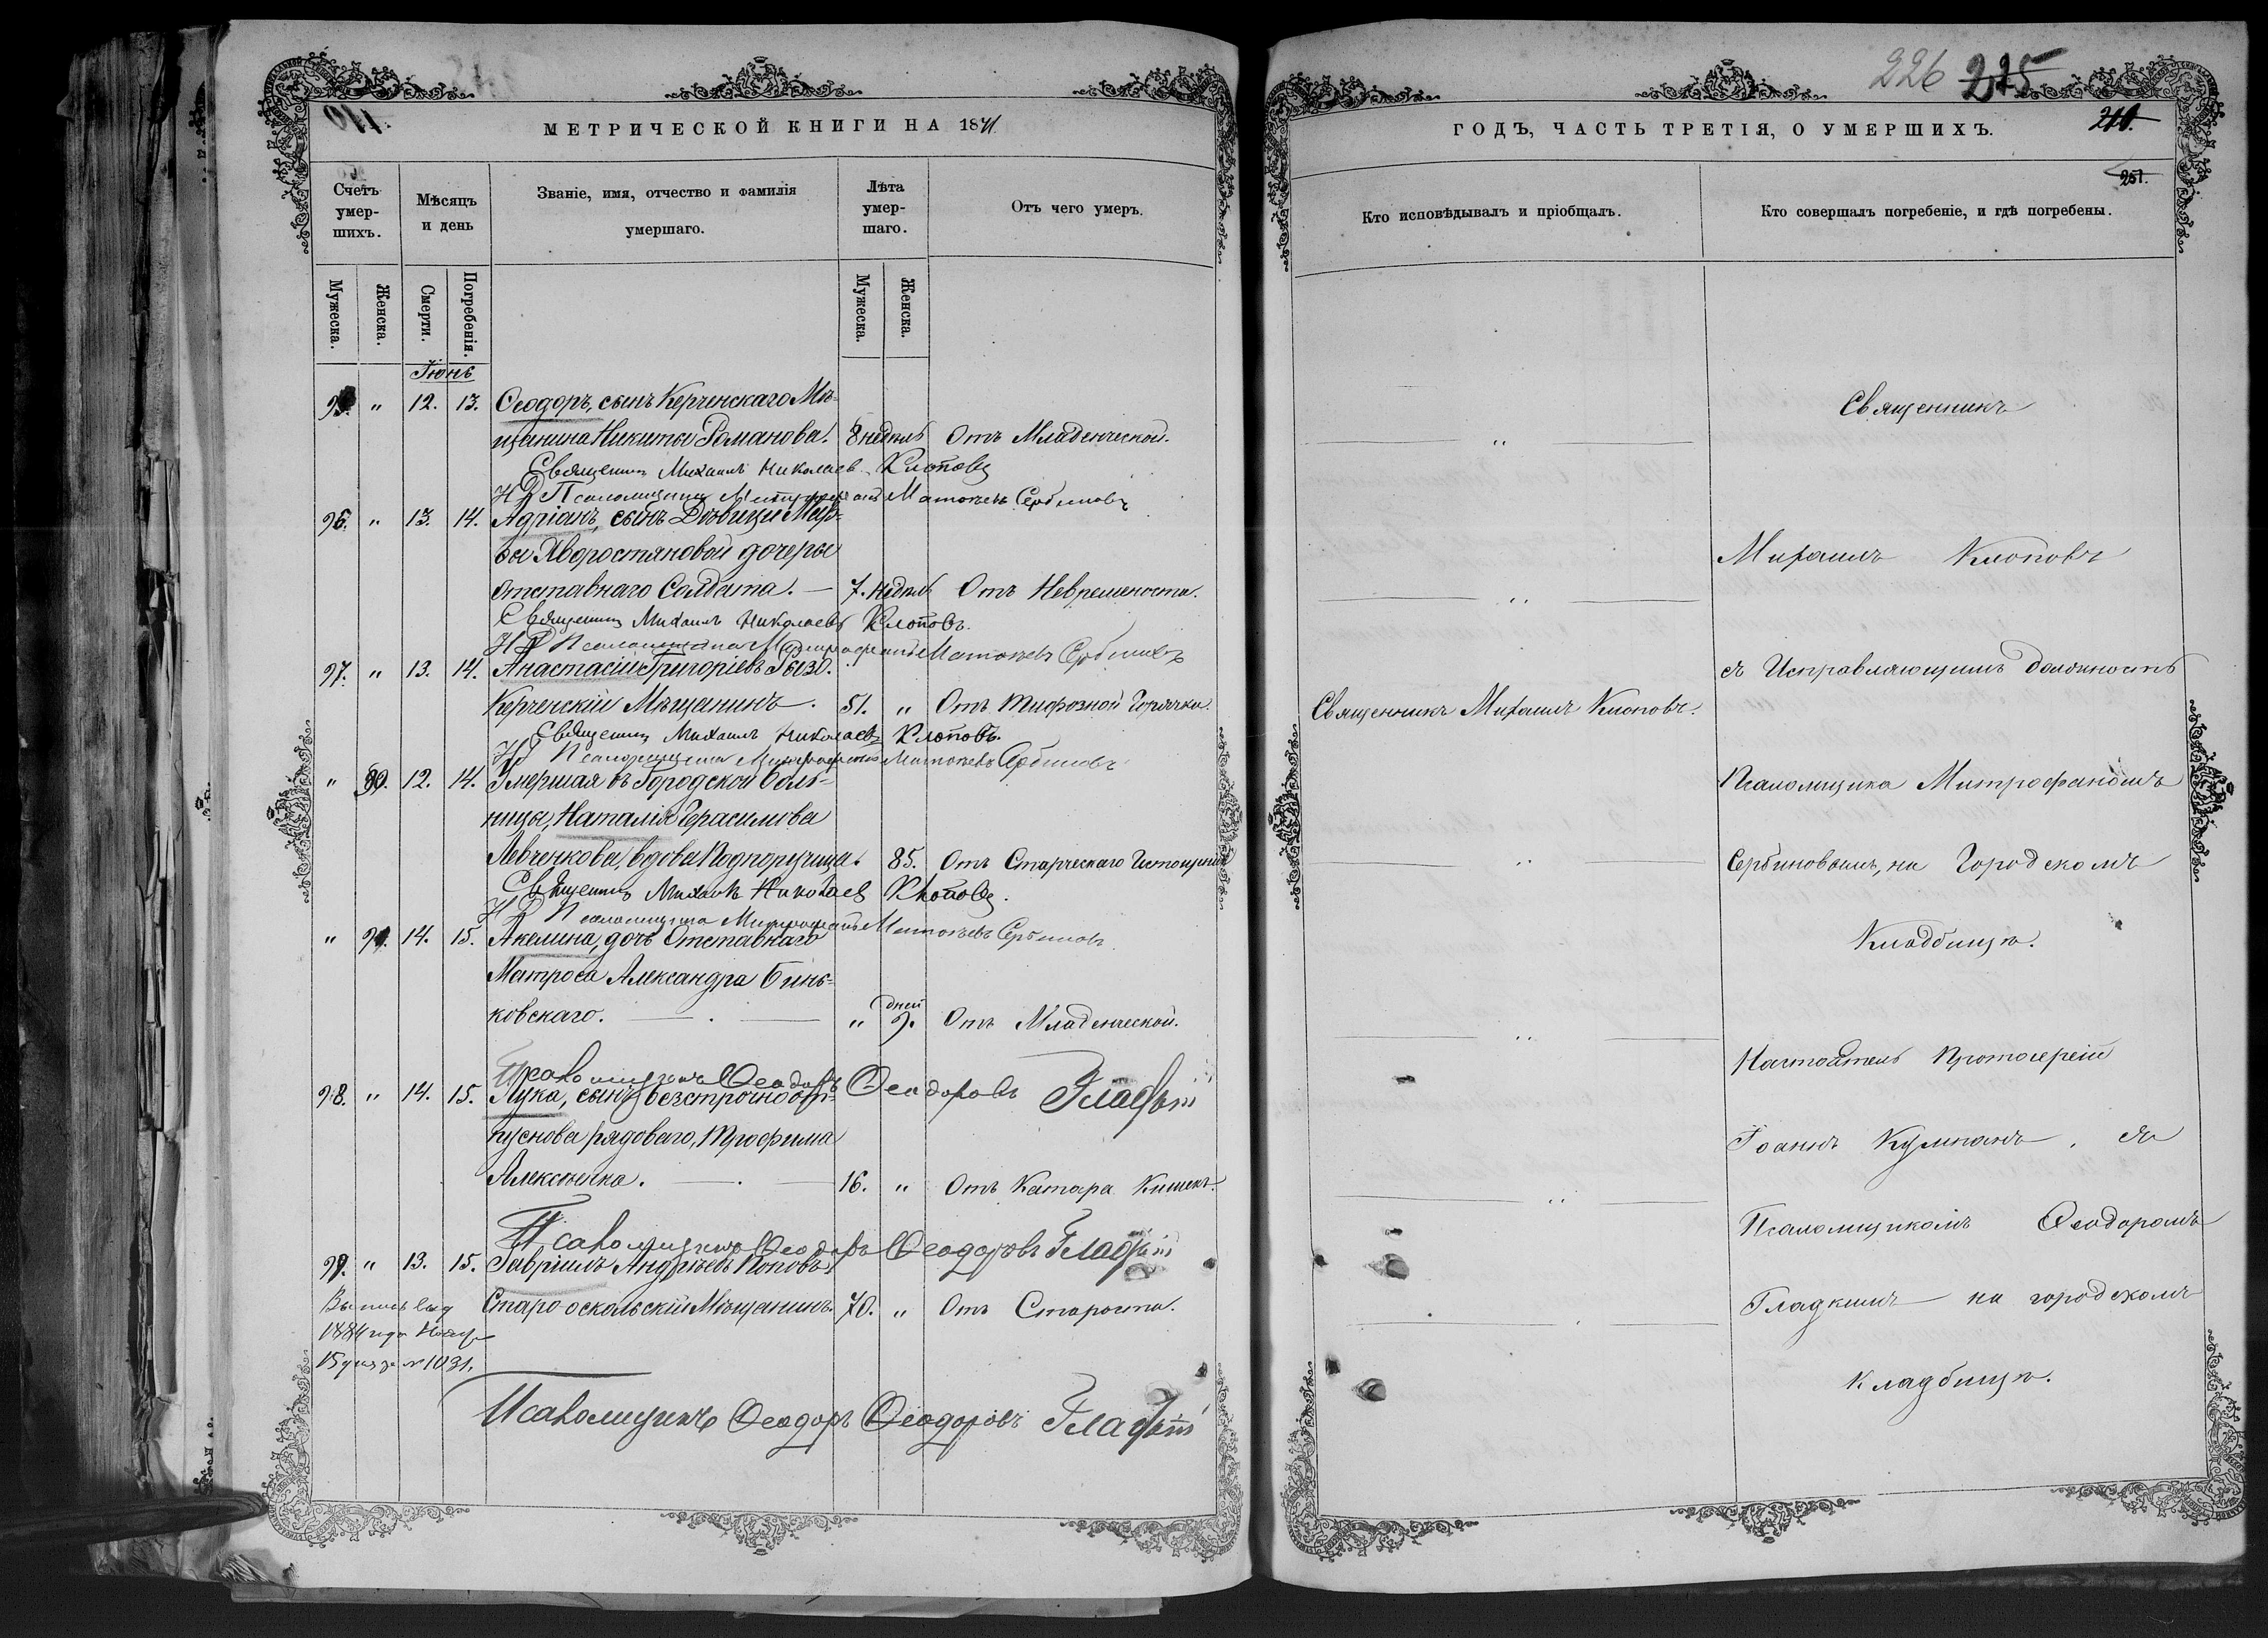 МЕТРИЧЕСКОЙ КНИГИ НА 1871
Счетъ умер-шихъ.
Мѣсяцъ и день
Званіе, имя, отчество и фамилія умершаго.
Лѣта умер-шаго.
Отъ чего умеръ.
Мужеска.
Женска.
Смерти.
Погребенія.
Мужеска.
Женска.
Іюнь
95. " 12. 13. Ѳеодоръ, сынъ Керченскаго Мѣ-
щанина Никиты Романова. 8 недѣль Отъ Младенческой.
Священникъ Михаилъ Николаевъ Клоповъ
И Д Псаломщика Митрофанъ Матвѣевъ Сербиновъ
96. " 13. 14. Адріанъ, сынъ Дѣвицы Мар-
ѳы Хворостяновой дочери
отставнаго Солдата. — 7. недѣль Отъ Невремености.
Священникъ Михаилъ Николаевъ Клоповъ.
И Д Псаломщика Митрофанъ Матвѣевъ Сербиновъ
97. " 13. 14. Анастасій Григоріевъ
Керченскій Мѣщанинъ. 51. " Отъ Тифозной Горячки.
Священникъ Михаилъ Николаевъ Клоповъ.
И Д Псаломщика Митрофанъ Матвѣевъ Сербиновъ
" 12. 14. Умершая въ Городской Боль-
ницы, Наталія Герасимова
Левченкова, вдова Подпоручица. 85. Отъ Старческаго Истощенія
Священникъ Михаилъ Николаевъ Клоповъ.
И Д Псаломщика Митрофанъ Матвѣевъ Сербиновъ
" 14. 15. Акелина, дочь Отставнаго
Матроса Александра Бинь-
ковскаго. " 9. дней Отъ Младенческой.
Псаломщикъ Ѳеодоръ Ѳеодоровъ Гладкій
98. " 14. 15. Лука, сынъ безсрочноот-
пускова рядоваго, Трофима
16. " Отъ Катара Кишекъ.
Псаломщикъ Ѳеодоръ Ѳеодоровъ Гладкій
99. " 13. 15. Гавріилъ Андреевъ Поповъ,
Старооскольскій Мѣщанинъ. 70. " Отъ Старости.
1884 года
15 дня за № 1031.
Псаломщикъ Ѳеодоръ Ѳеодоровъ Гладкій
226 225
ГОДЪ, ЧАСТЬ ТРЕТІЯ, О УМЕРШИХЪ.
210.
251.
Кто исповѣдывалъ и пріобщалъ.
Кто совершалъ погребеніе, и гдѣ погребены.
Священникъ Михаилъ Клоповъ.
Священникъ
Михаилъ Клоповъ
съ Исправляющимъ должность
Псаломщика Митрофаномъ
Сербиновымъ, на Городскомъ
Кладбищѣ.
Настоятель Протоіерей
Іоаннъ Кумпанъ, съ
Псаломщикомъ Ѳеодоромъ
Гладкимъ на городскомъ
кладбищѣ.